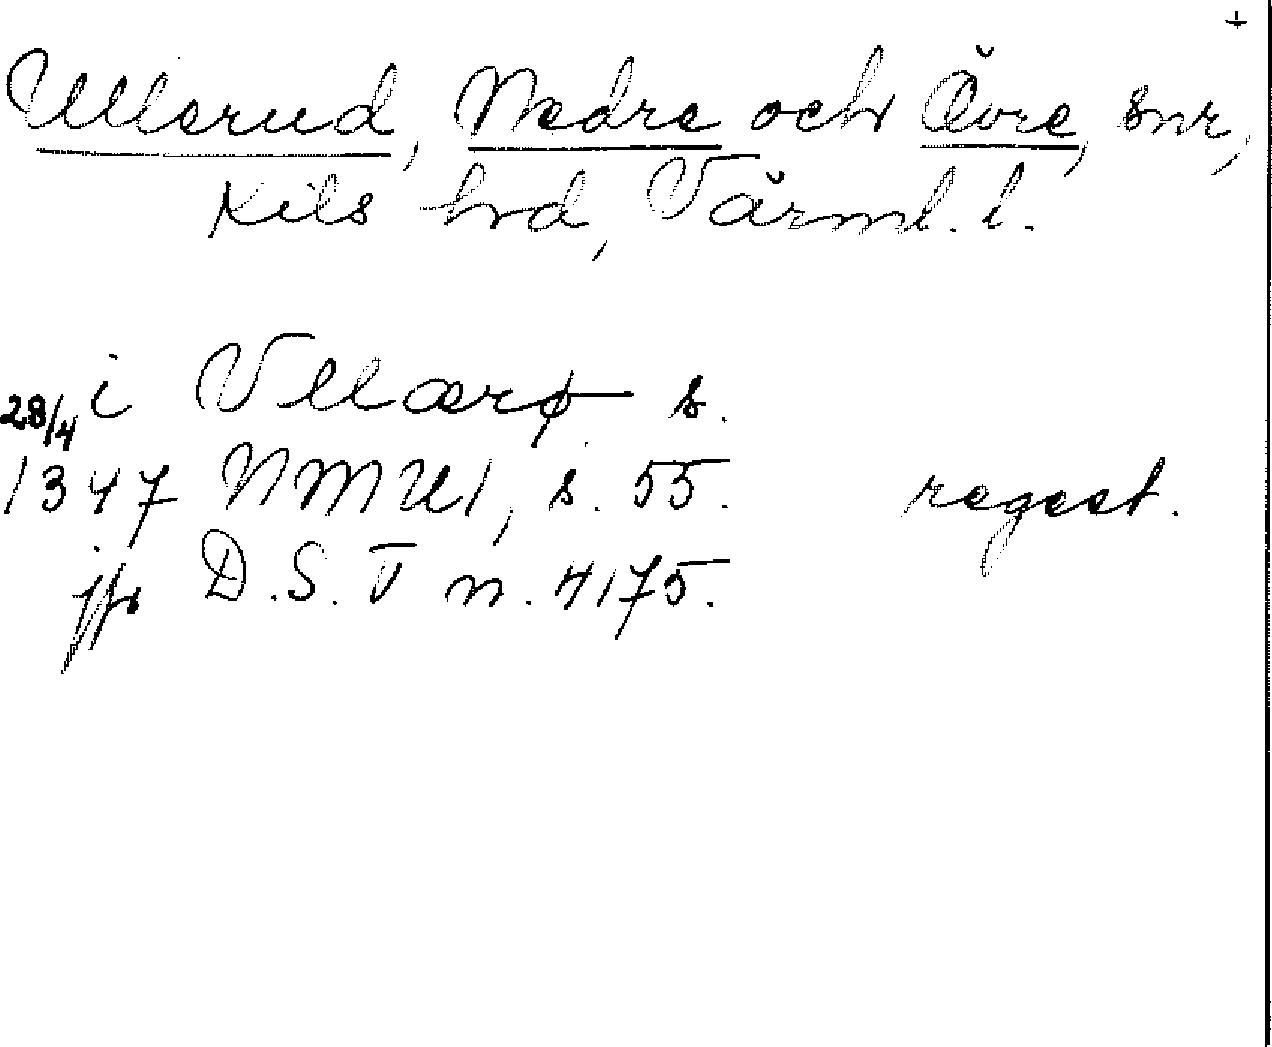 +
Ullerud, Nedre och Övre, snr,
Kils hrd, Värml. l.
i Vllærø s.
28/4
1347 NMU1, s. 55. regest.
jfr D.S. V n. 4175.